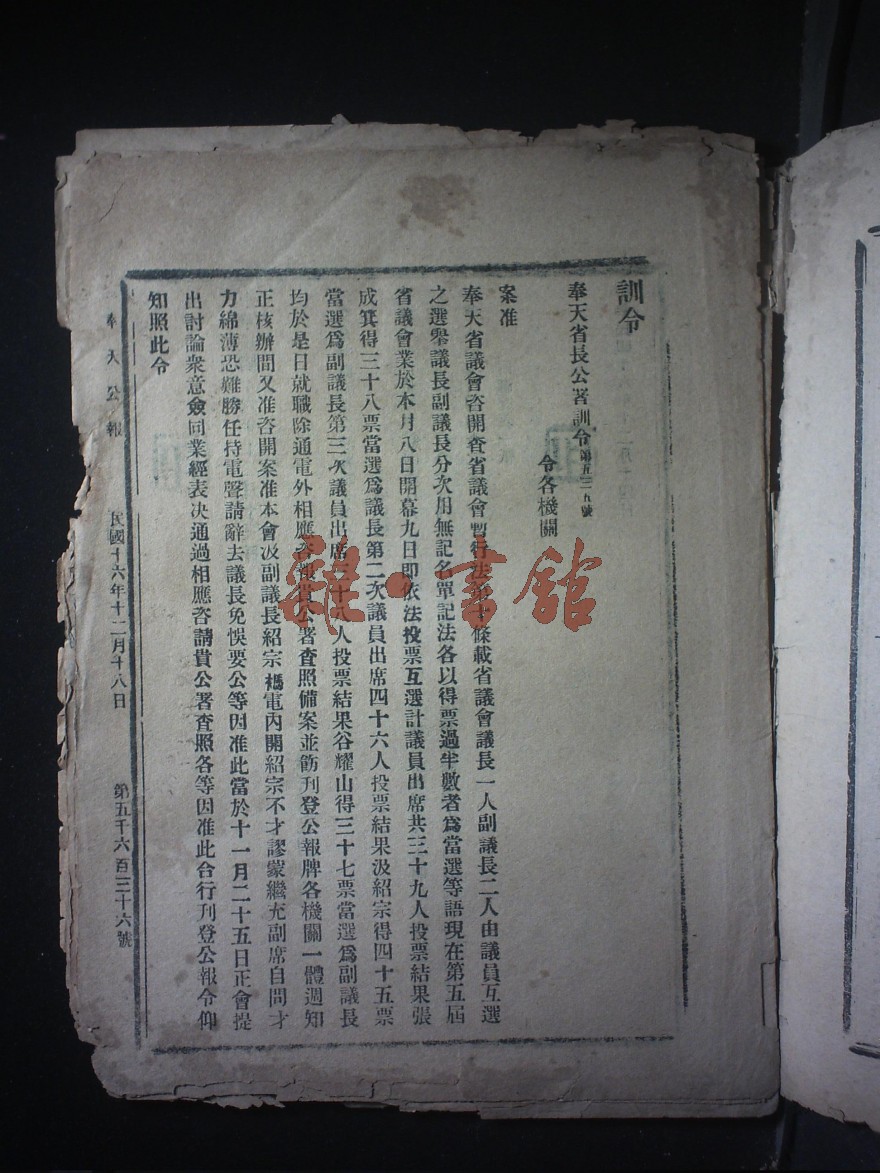 訓令
奉天省長公署訓令第五三五號
令各機關
案准
奉天省議會咨開查省議會暫行法第十條載省議會議長一人副議長二人由議員互選
之選舉議長副議長分次用無記名單記法各以得票過半數者爲當選等語現在第五屆
省議會業於本月八日開幕九日即依法投票互選計議員出席共三十九人投票結果張
成箕得三十八票當選爲議長第二次議員出席四十六人投票結果汲紹宗得四十五票
當選爲副議長第三次議員出席三十八人投票結果谷耀山得三十七票當選爲副議長
均於是日就職除通電外相應咨報貴公署查照備案並飭刊登公報牌各機關一體週知
正核辦間又准咨開案准本會汲副議長紹宗電內開紹宗不才謬蒙繼充副席自問才
力綿薄恐難勝任持電聲請辭去議長免悞要公等因准此當於十一月二十五日正會提
出討論衆意僉同業經表決通過相應咨請貴公署查照各等因准此合行刊登公報令仰
知照此令
奉天公報 民國十六年十二月十八日 第五千六百三十六號
雜·書館